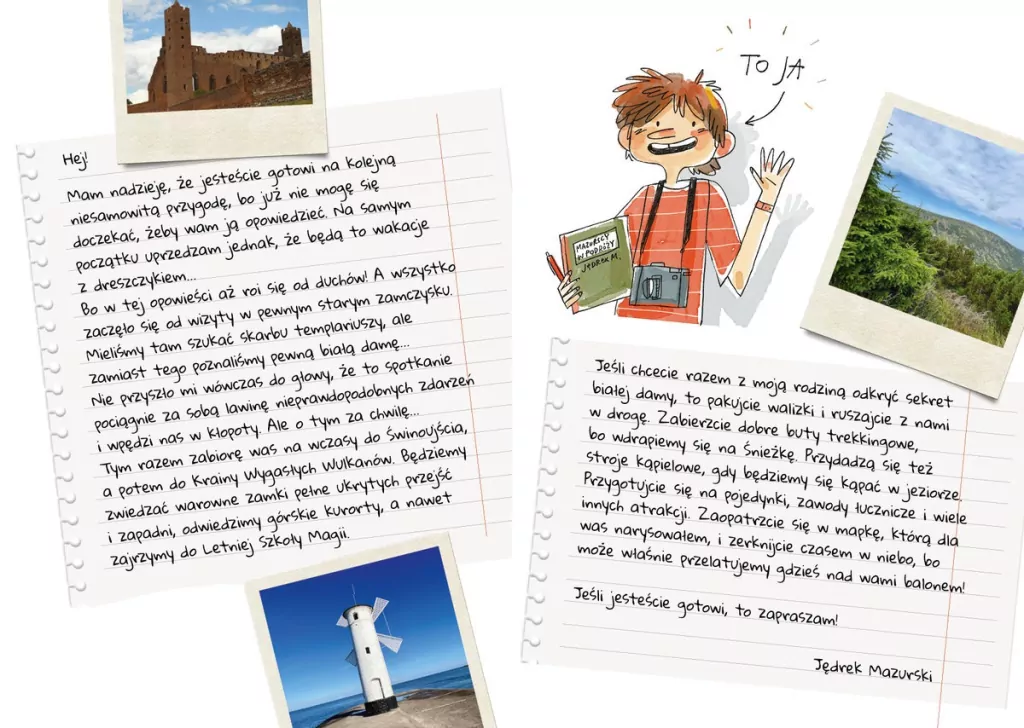 Hej!
Mam nadzieję, że jesteście gotowi na kolejną
niesamowitą przygodę, bo już nie mogę się
doczekać, żeby wam ją opowiedzieć. Na samym
początku uprzedzam jednak, że będą to wakacje
z dreszczykiem...
Bo w tej opowieści aż roi się od duchów! A wszystko
zaczęło się od wizyty w pewnym starym zamczysku.
Mieliśmy tam szukać skarbu templariuszy, ale
zamiast tego poznaliśmy pewną białą damę...
Nie przyszło mi wówczas do głowy, że to spotkanie
pociągnie za sobą lawinę nieprawdopodobnych zdarzeń
i wpędzi nas w kłopoty. Ale o tym za chwilę...
Tym razem zabiorę was na wczasy do Świnoujścia,
a potem do Krainy Wygasłych Wulkanów. Będziemy
zwiedzać warowne zamki pełne ukrytych przejść
i zapadni, odwiedzimy górskie kurorty, a nawet
zajrzymy do Letniej Szkoły Magii.
TO JA
MAZURSCY
W PODRÓŻY
JĘDREK M.
Jeśli chcecie razem z moją rodziną odkryć sekret
białej damy, to pakujcie walizki i ruszajcie z nami
w drogę. Zabierzcie dobre buty trekkingowe,
bo wdrapiemy się na Śnieżkę. Przydadzą się też
stroje kąpielowe, gdy będziemy się kąpać w jeziorze.
Przygotujcie się na pojedynki, zawody łucznicze i wiele
innych atrakcji. Zaopatrzcie się w mapkę, którą dla
was narysowałem, i zerknijcie czasem w niebo, bo
może właśnie przelatujemy gdzieś nad wami balonem!
Jeśli jesteście gotowi, to zapraszam!
Jędrek Mazurski